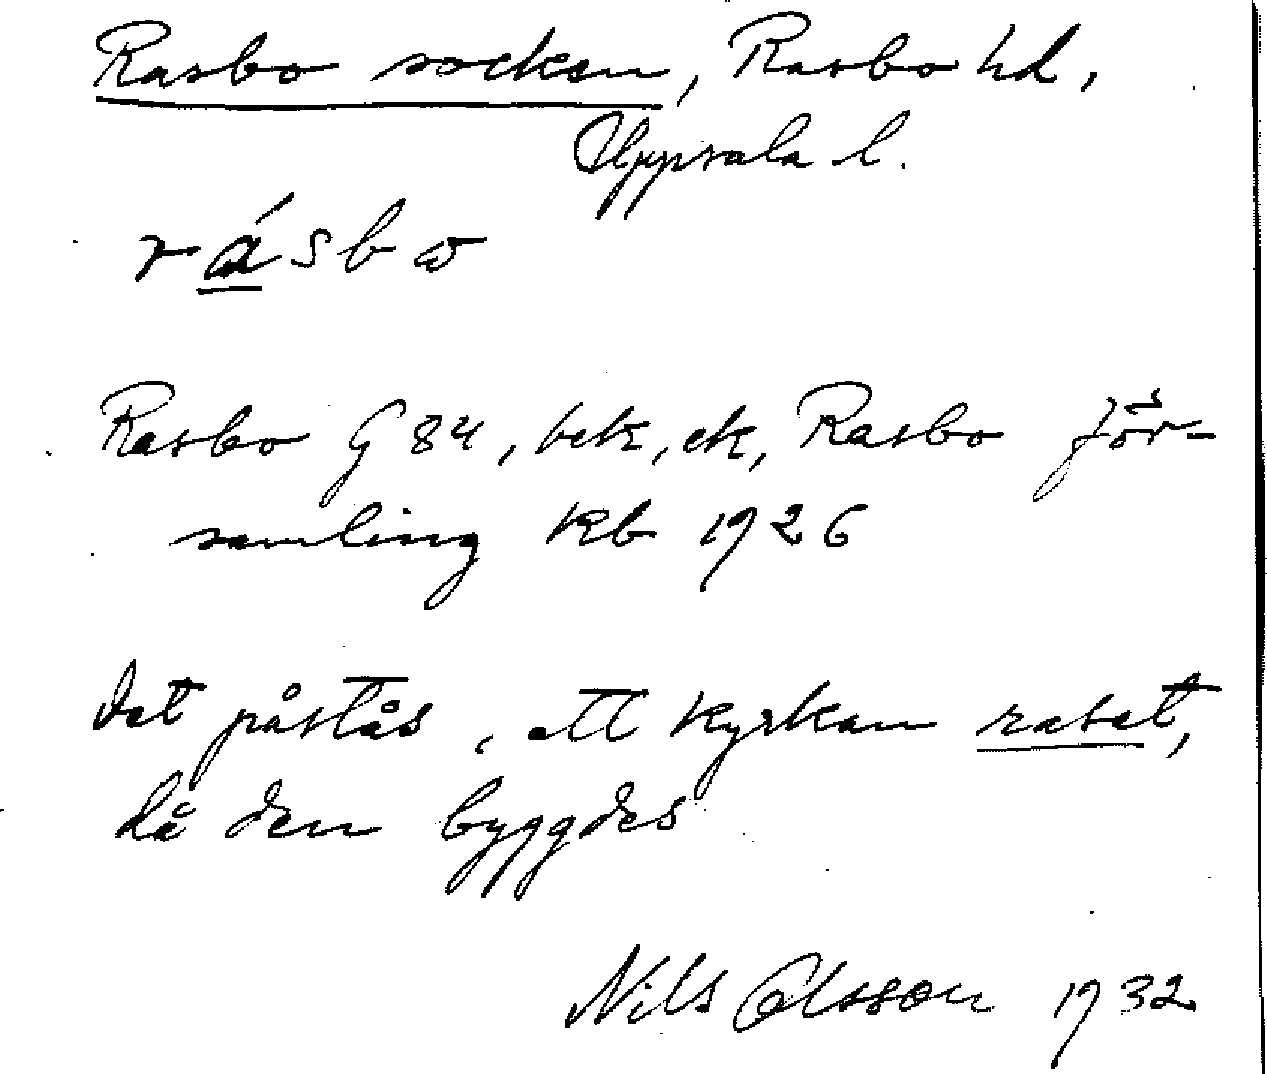 Rasbo socken, Rasbo hd,
Uppsala l.
rásbω
Rasbo G 84, bek, ek, Rasbo för-
samling kb 1926
Det påstås, att kyrkan raset,
då den byggdes
Nils Olsson 1932